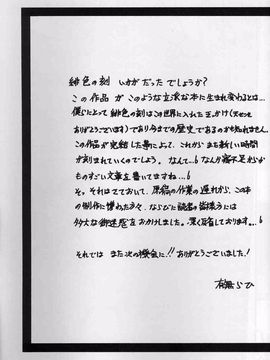 緋色の刻 いかがだったでしょうか?
この作品が このような立派な本に生まれ変わるとは…
僕らにとって緋色の刻はこの世界に入れた きっかけ
ありがとうございます)であり今までの歴史であるのかも知れません
この作品が完結した事によって、これから また新しい時間
が刻まれていくのでしょう。なんて…。なんか寝不足からか
ものすごい文章を書いてますね…。
そ、それはさておいて、原稿の作業の遅れから、この本
の制作に携わった方々、ならびに読者の皆様方には
多大な御迷惑をおかけしました。深く反省しております…。
それでは また次の機会に!!ありがとうございました!